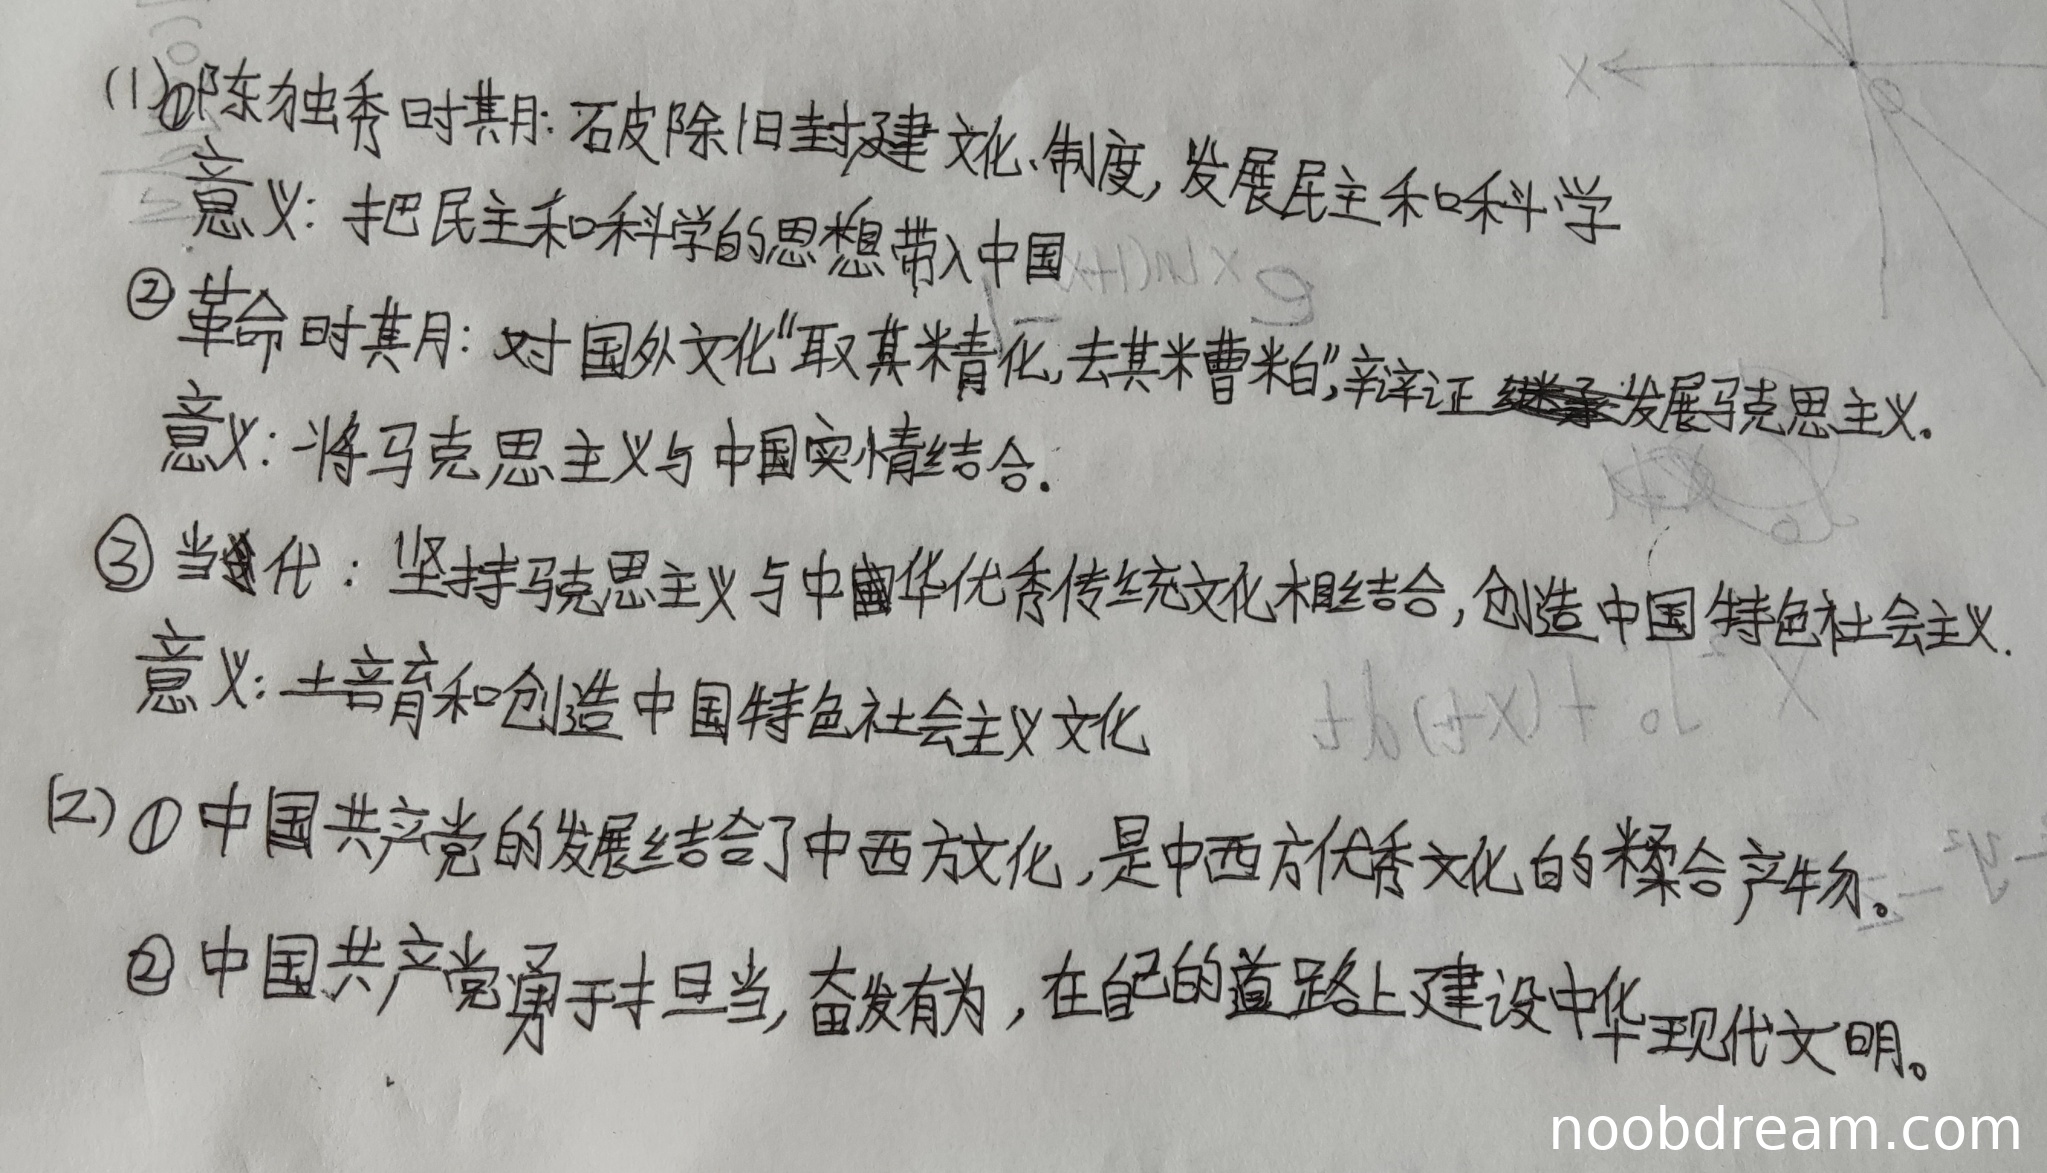 (1)①陈独秀时期：破除旧封建文化、制度，发展民主和科学
意义：把民主和科学的思想带入中国
②革命时期：对国外文化“取其精化，去其糟粕”，辩证发展马克思主义。
意义：将马克思主义与中国实情结合.
③当代：坚持马克思主义与中华优秀传统文化相结合，创造中国特色社会主义.
意义：培育和创造中国特色社会主义文化
(2)①中国共产党的发展结合了中西方文化，是中西方优秀文化的糅合产物。
②中国共产党勇于担当，奋发有为，在自己的道路上建设中华现代文明。
noobdream.com